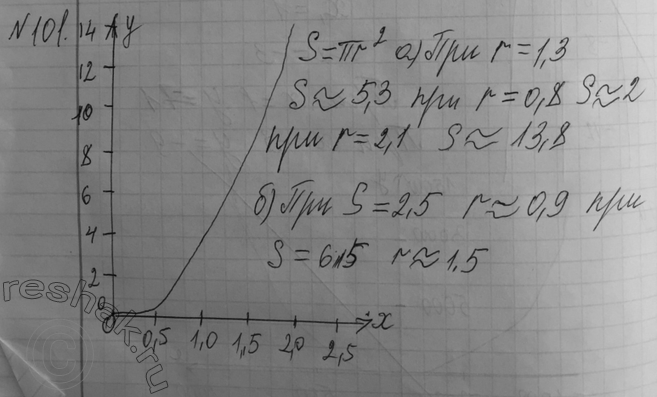 N101.
14 y
S=πr² а) При r=1,3
12
S≈5,3 при r=0,8 S≈2
10
при r=2,1 S≈13,8
8
6
б) При S=2,5 r≈0,9 при
4
S=6,5 r≈1.5
2
0
0 0,5 1,0 1,5 2,0 2,5 x
reshak.ru